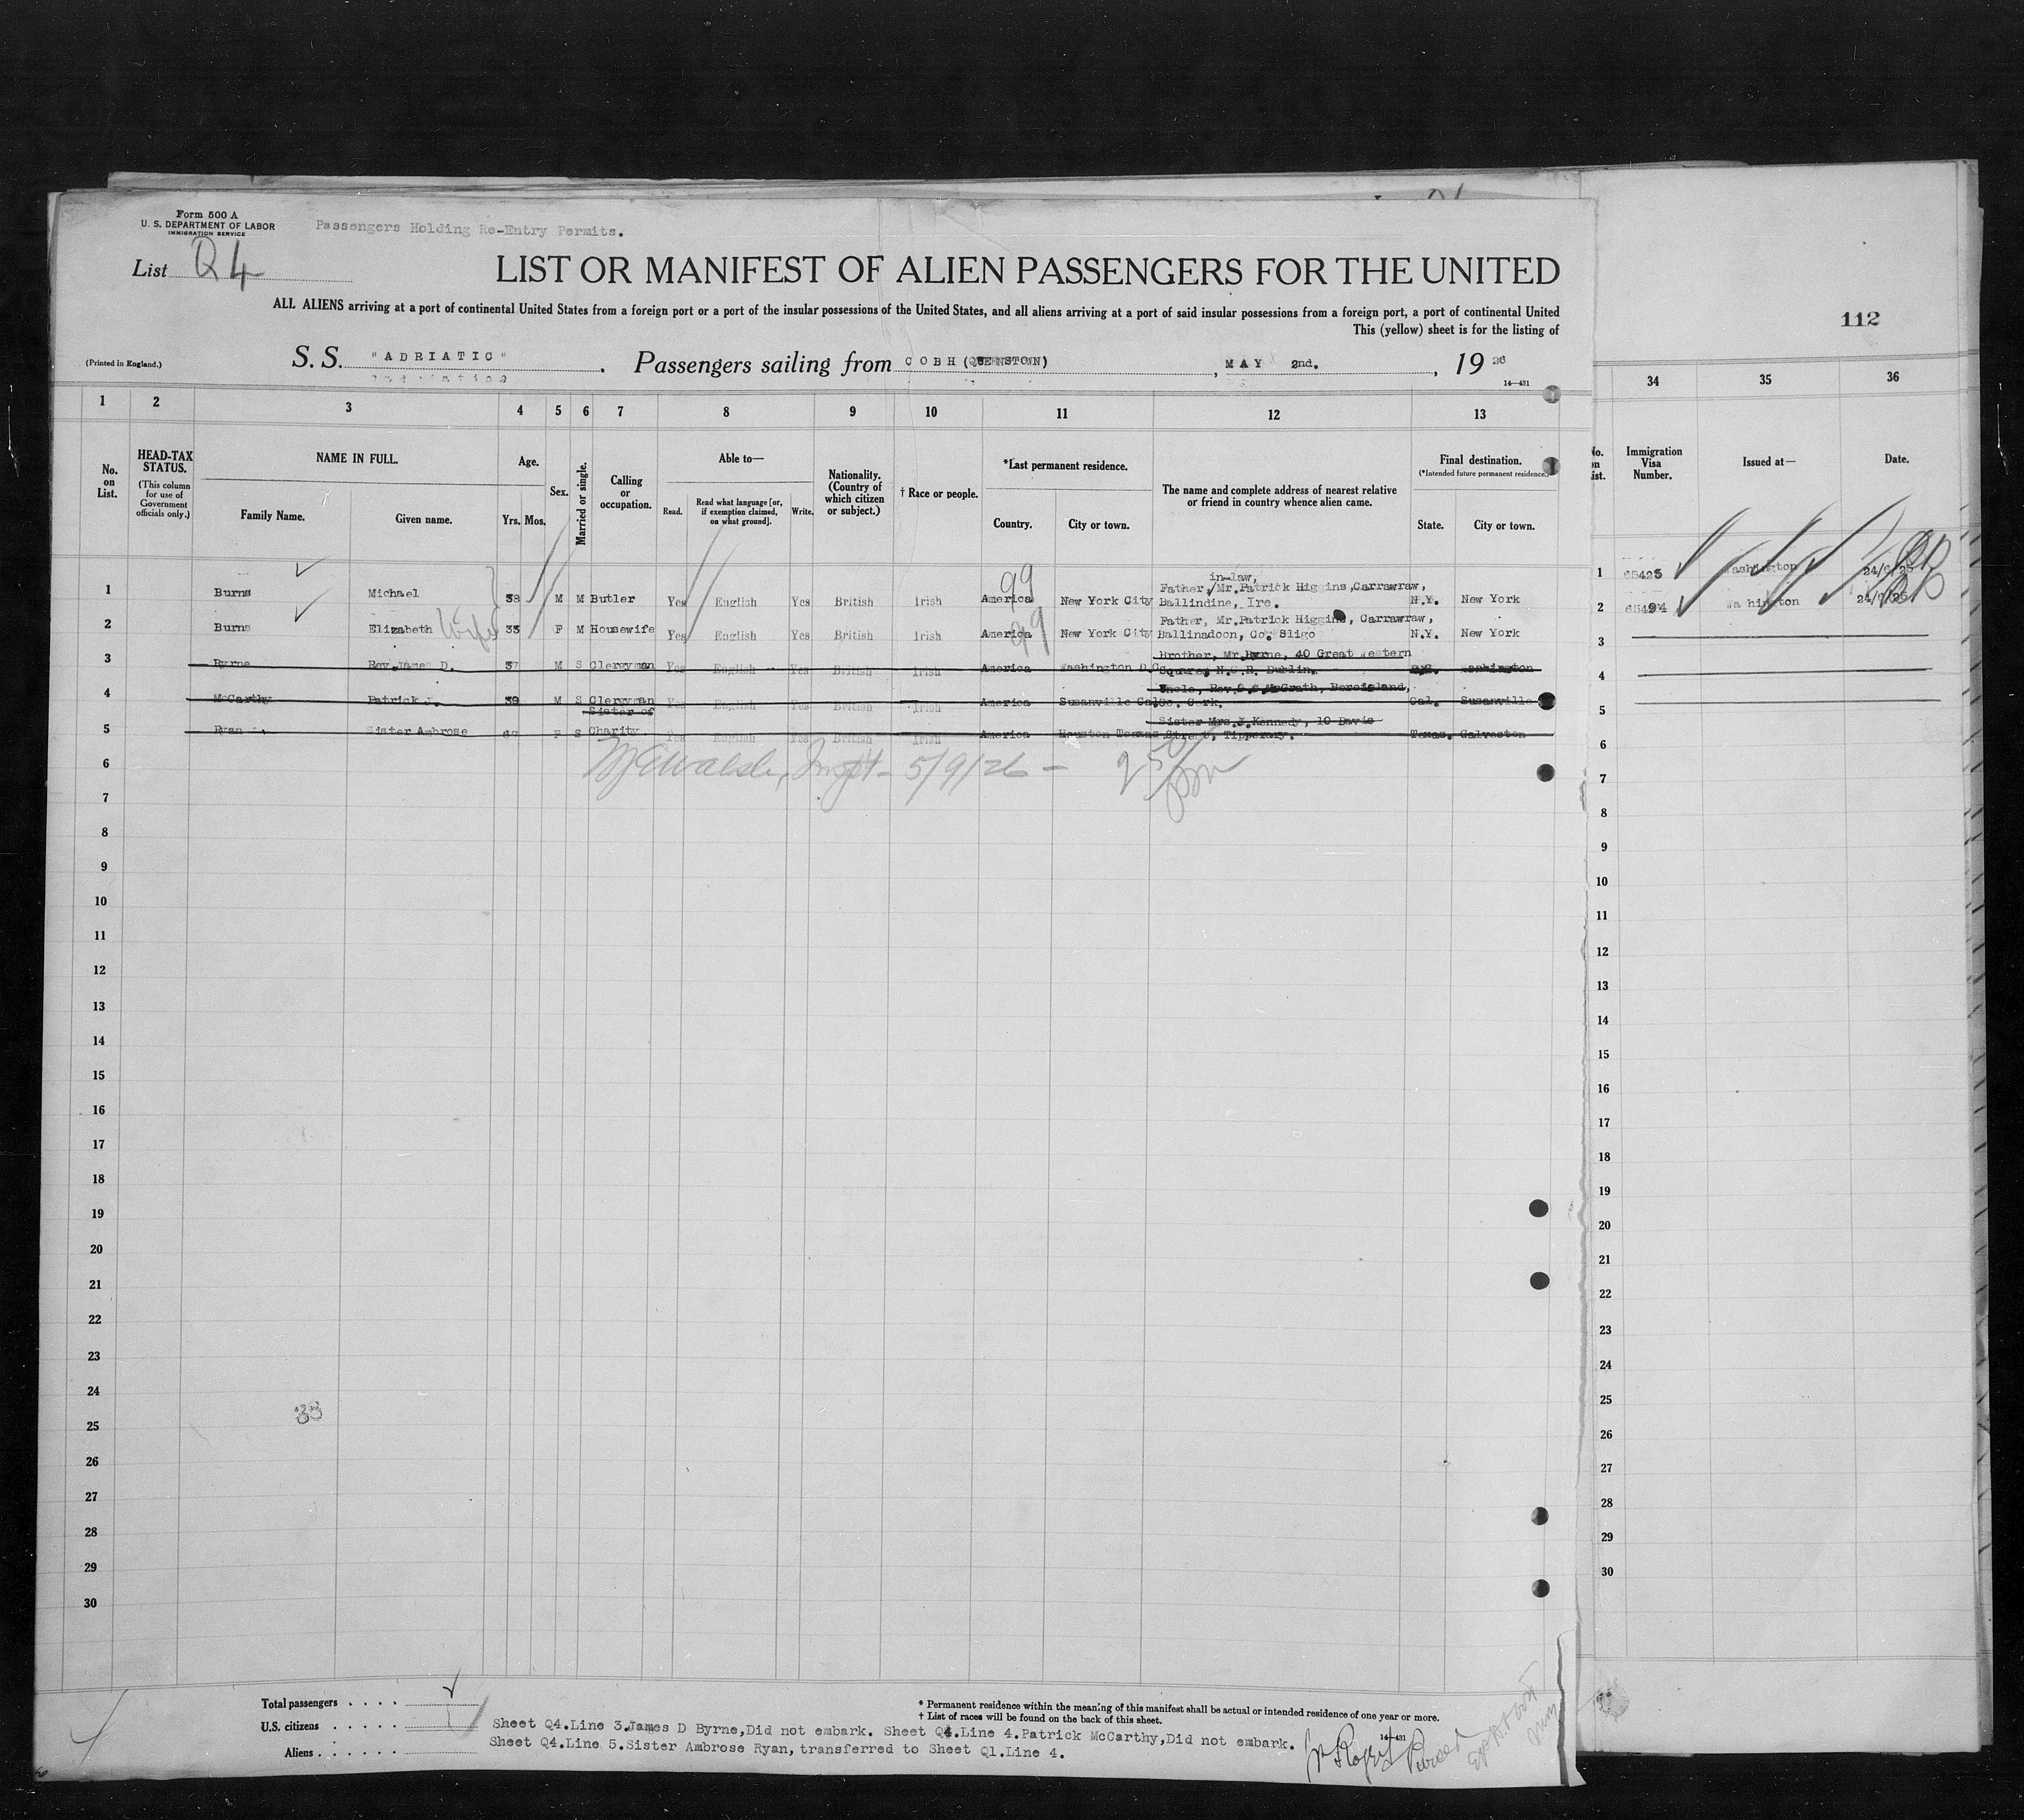 Form 500 A
U. S. DEPARTMENT OF LABOR
IMMIGRATION SERVICE
Passengers Holding Re-Entry Permits.
List Q4
LIST OR MANIFEST OF ALIEN PASSENGERS FOR THE UNITED
ALL ALIENS arriving at a port of continental United States from a foreign port or a port of the insular possessions of the United States, and all aliens arriving at a port of said insular possessions from a foreign port, a port of continental United
This (yellow) sheet is for the listing of
112
(Printed in England.)
S. S. "ADRIATIC". Passengers sailing from COBH (QUEENSTOWN), MAY 2nd., 1926
14—431
1 2 3 4 5 6 7 8 9 10 11 12 13
34 35 36
No. on List.
HEAD-TAX STATUS.
(This column for use of Government officials only.)
NAME IN FULL.
Family Name. Given name.
Age.
Yrs. Mos.
Sex.
Married or single.
Calling or occupation.
Able to—
Read. Read what language [or, if exemption claimed, on what ground]. Write.
Nationality. (Country of which citizen or subject.)
† Race or people.
*Last permanent residence.
Country. City or town.
The name and complete address of nearest relative or friend in country whence alien came.
Final destination.
(*Intended future permanent residence.)
State. City or town.
No. on List.
Immigration Visa Number.
Issued at—
Date.
99
in-law,
1 Burns Michael 38 M M Butler Yes English Yes British Irish America New York City Father, Mr. Patrick Higgins, Carrawraw, Ballindine, Ire. N.Y. New York
1 Washington
99
2 Burns Elizabeth Wife 33 F M Housewife Yes English Yes British Irish America New York City Father, Mr. Patrick Higgins, Carrawraw, Ballinadoon, Co. Sligo N.Y. New York
2 Wa hington
3 Byrne Rev. James D. 37 M S Clergyman Yes English Yes British Irish America Washington D.C. Brother, Mr. Byrne, 40 Great Western Square, N.C.R. Dublin. Washington
4 McCarthy Patrick J. 39 M S Clergyman Yes English Yes British Irish America Susanville Cal. Uncle, Rev. McGrath, Co. Cork. Cal. Susanville
5 Ryan Sister Ambrose 67 F S Sister of Charity Yes English Yes British Irish America Houston Texas Sister Mrs. J. Kennedy, 10 Davis Street, Tipperary. Texas. Galveston
Walsh, 5/9/26 —
6
7
8
9
10
11
12
13
14
15
16
17
18
19
20
21
22
23
24
33
25
26
27
28
29
30
3
4
5
6
7
8
9
10
11
12
13
14
15
16
17
18
19
20
21
22
23
24
25
26
27
28
29
30
Total passengers . . . .
U.S. citizens . . . . .
Aliens . . . . . .
* Permanent residence within the meaning of this manifest shall be actual or intended residence of one year or more.
† List of races will be found on the back of this sheet.
14—431
Sheet Q4.Line 3.James D Byrne,Did not embark. Sheet Q4.Line 4.Patrick McCarthy,Did not embark.
Sheet Q4.Line 5.Sister Ambrose Ryan,transferred to Sheet Q1.Line 4.